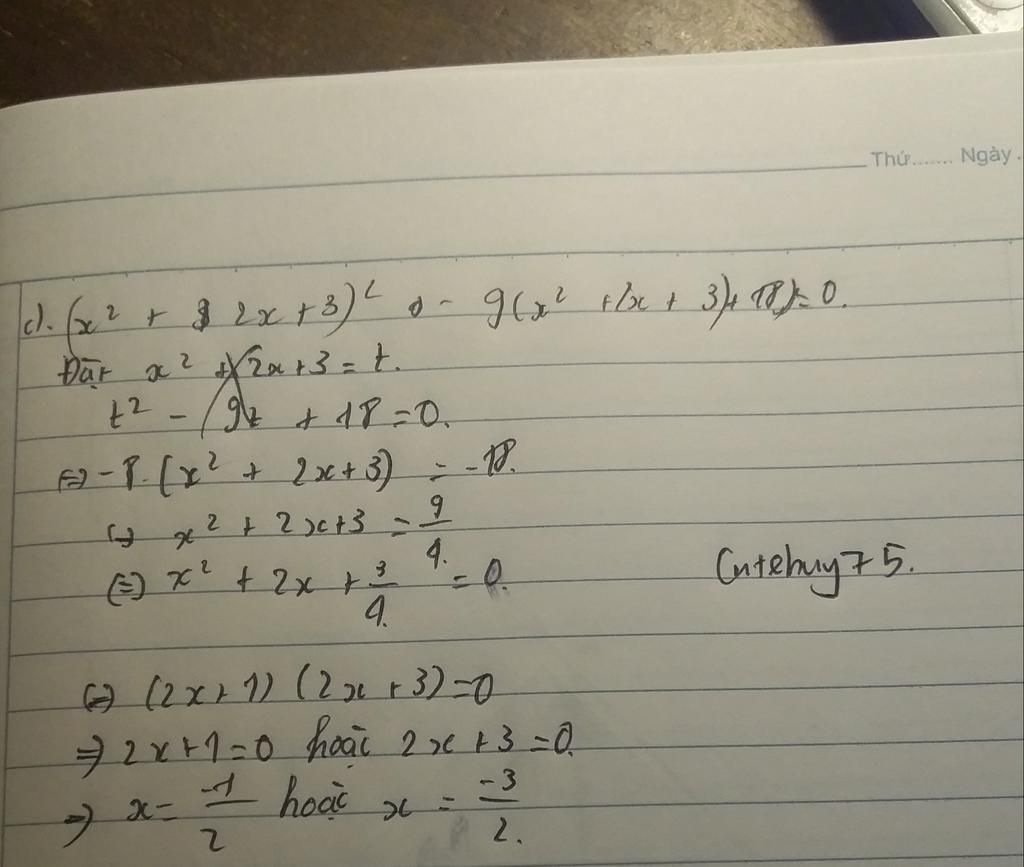 Thứ....... Ngày.
c). (x² + 2x+3)² - 9(x² +2x + 3)+ 18)=0.
Đặt x² + 2x+3 = t.
t² - 9t + 18 =0.
(=) -8.(x² + 2x+3) = -18.
(=) x² + 2x+3 = 9/4.
(=) x² + 2x + 3/4 = 0.
Cutehuy75.
(=) (2x+1) (2x +3)=0
=> 2x+1=0 hoặc 2x+3=0.
=> x= -1/2 hoặc x = -3/2.